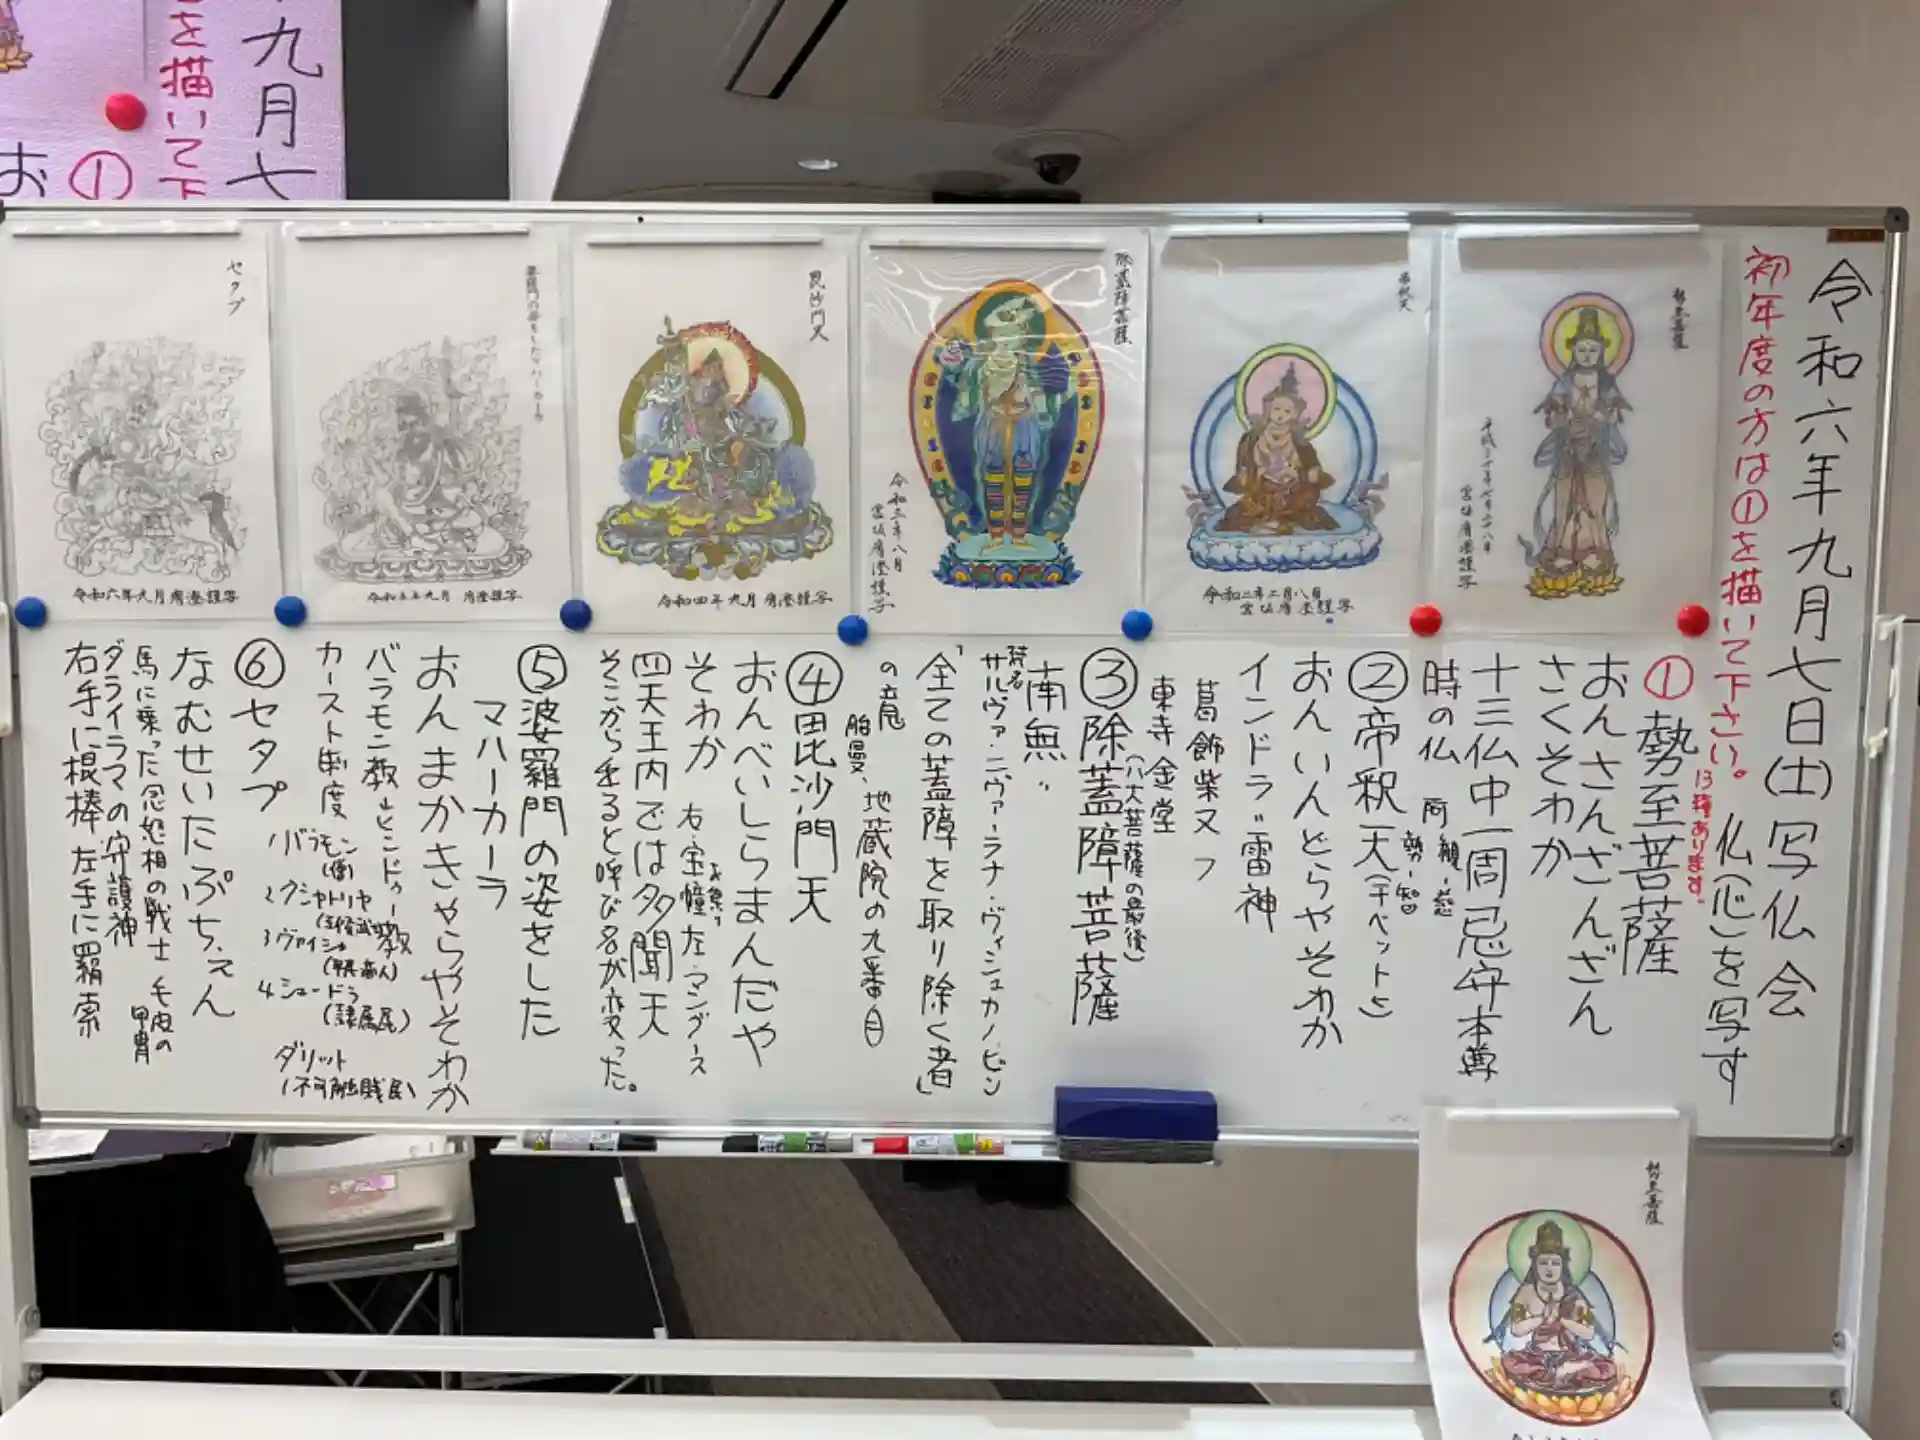 令和六年九月七日(土)写仏会
初年度の方は①を描いて下さい。
仏(心)を写す
13種あります。
①勢至菩薩
おんさんざんざん
さくそわか
十三仏中一周忌守本尊
時の仏
観-慈
勢-智
②帝釈天(チベット)
おんいんどらやそわか
インドラ"雷神
葛飾柴又
東寺金堂
③除蓋障菩薩
(八大菩薩の最後)
南無〃
梵名
サルヴァ・ニヴァーラナ・ヴィシュカンビン
「全ての蓋障を取り除く者」
の意
胎曼、地蔵院の九番目
④毘沙門天
おんべいしらまんだや
そわか
右宝幢左マングース
四天王内では多聞天
そこから出ると呼び名が変った。
⑤婆羅門の姿をした
マハーカーラ
おんまかきゃらやそわか
バラモン教→ヒンドゥー教
カースト制度
1バラモン
(僧)
2クシャトリヤ
3ヴァイシャ
4シュードラ
(隷属民)
ダリット
(不可触賎民)
⑥セタプ
なむせいたぷちぇん
馬に乗った忿怒相の戦士 毛皮の
甲冑
ダライラマの守護神
右手に棍棒 左手に羂索
勢至菩薩
帝釈天
令和二年二月八日
除蓋障菩薩
令和三年八月
毘沙門天
令和四年九月
婆羅門の姿をしたマハーカーラ
令和五年九月
セタプ
令和六年九月
勢至菩薩
九月七
を描いて下
お①